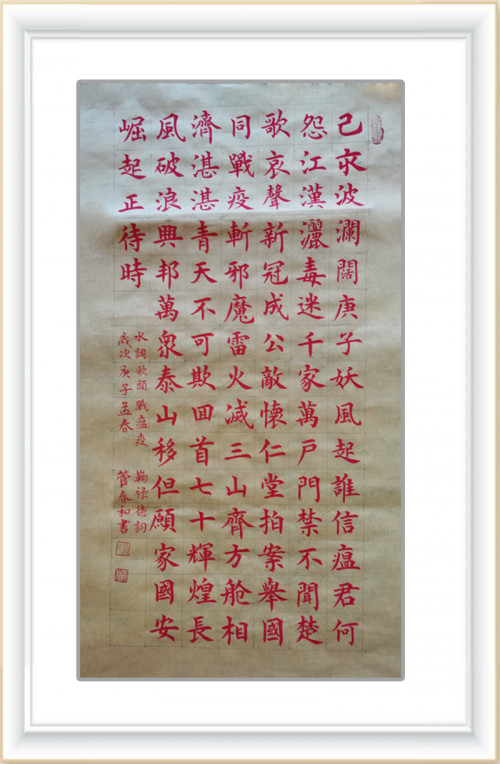 己亥波瀾闊庚子妖風起誰信瘟君何
怨江漢灑毒迷千家萬戶門禁不聞楚
歌哀聲新冠成公敵懷仁堂拍案舉國
同戰疫斬邪魔雷火滅三山齊方舱相
濟湛湛青天不可欺回首七十輝煌長
風破浪興邦萬衆泰山移但願家國安
崛起正待時
水調歌頭 戰瘟疫 禄德詞
歲次庚子孟春 管春和書